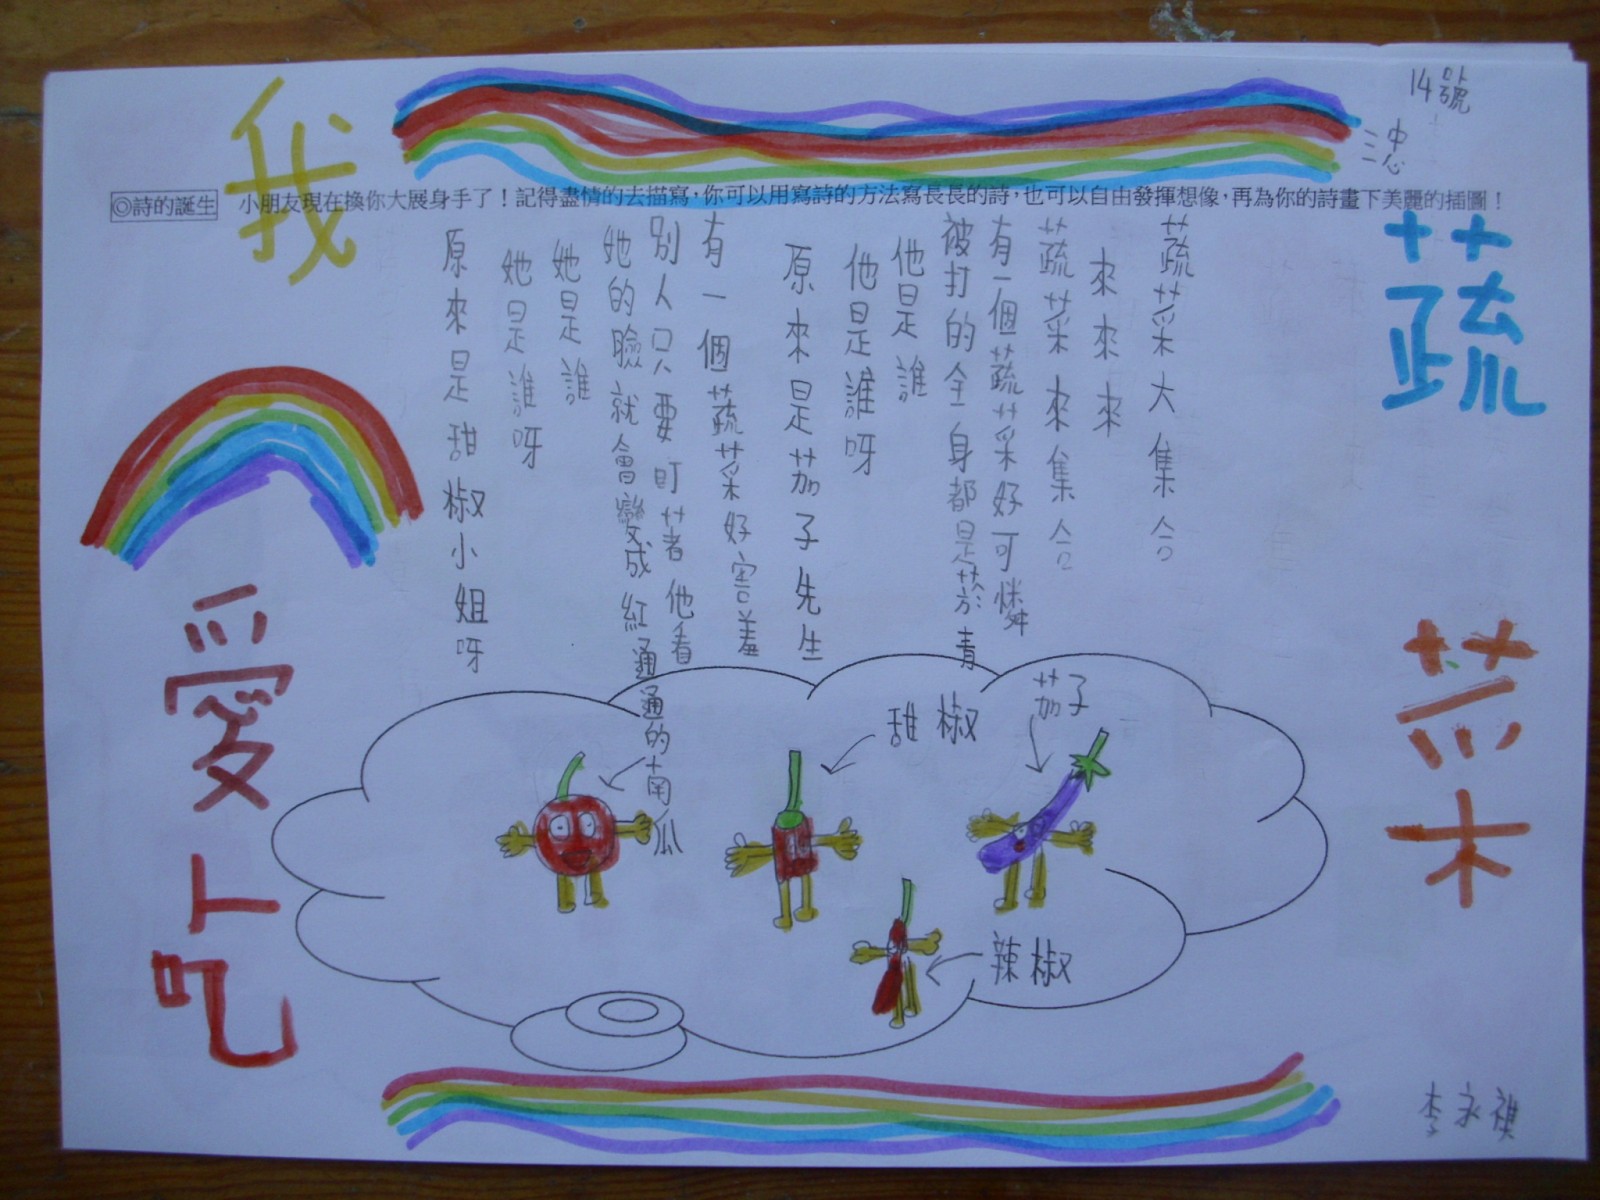 14號
三忠
◎詩的誕生 小朋友現在換你大展身手了！記得盡情的去描寫，你可以用寫詩的方法寫長長的詩，也可以自由發揮想像，再為你的詩畫下美麗的插圖！
蔬菜
我愛吃
蔬菜大集合
來來來
蔬菜來集合
有一個蔬菜好可憐
被打的全身都是菸青
他是誰
他是誰呀
原來是茄子先生
有一個蔬菜好害羞
別人只要盯著他看
她的臉就會變成紅通通的
她是誰
她是誰呀
原來是甜椒小姐呀
茄子
甜椒
南瓜
辣椒
李永祺